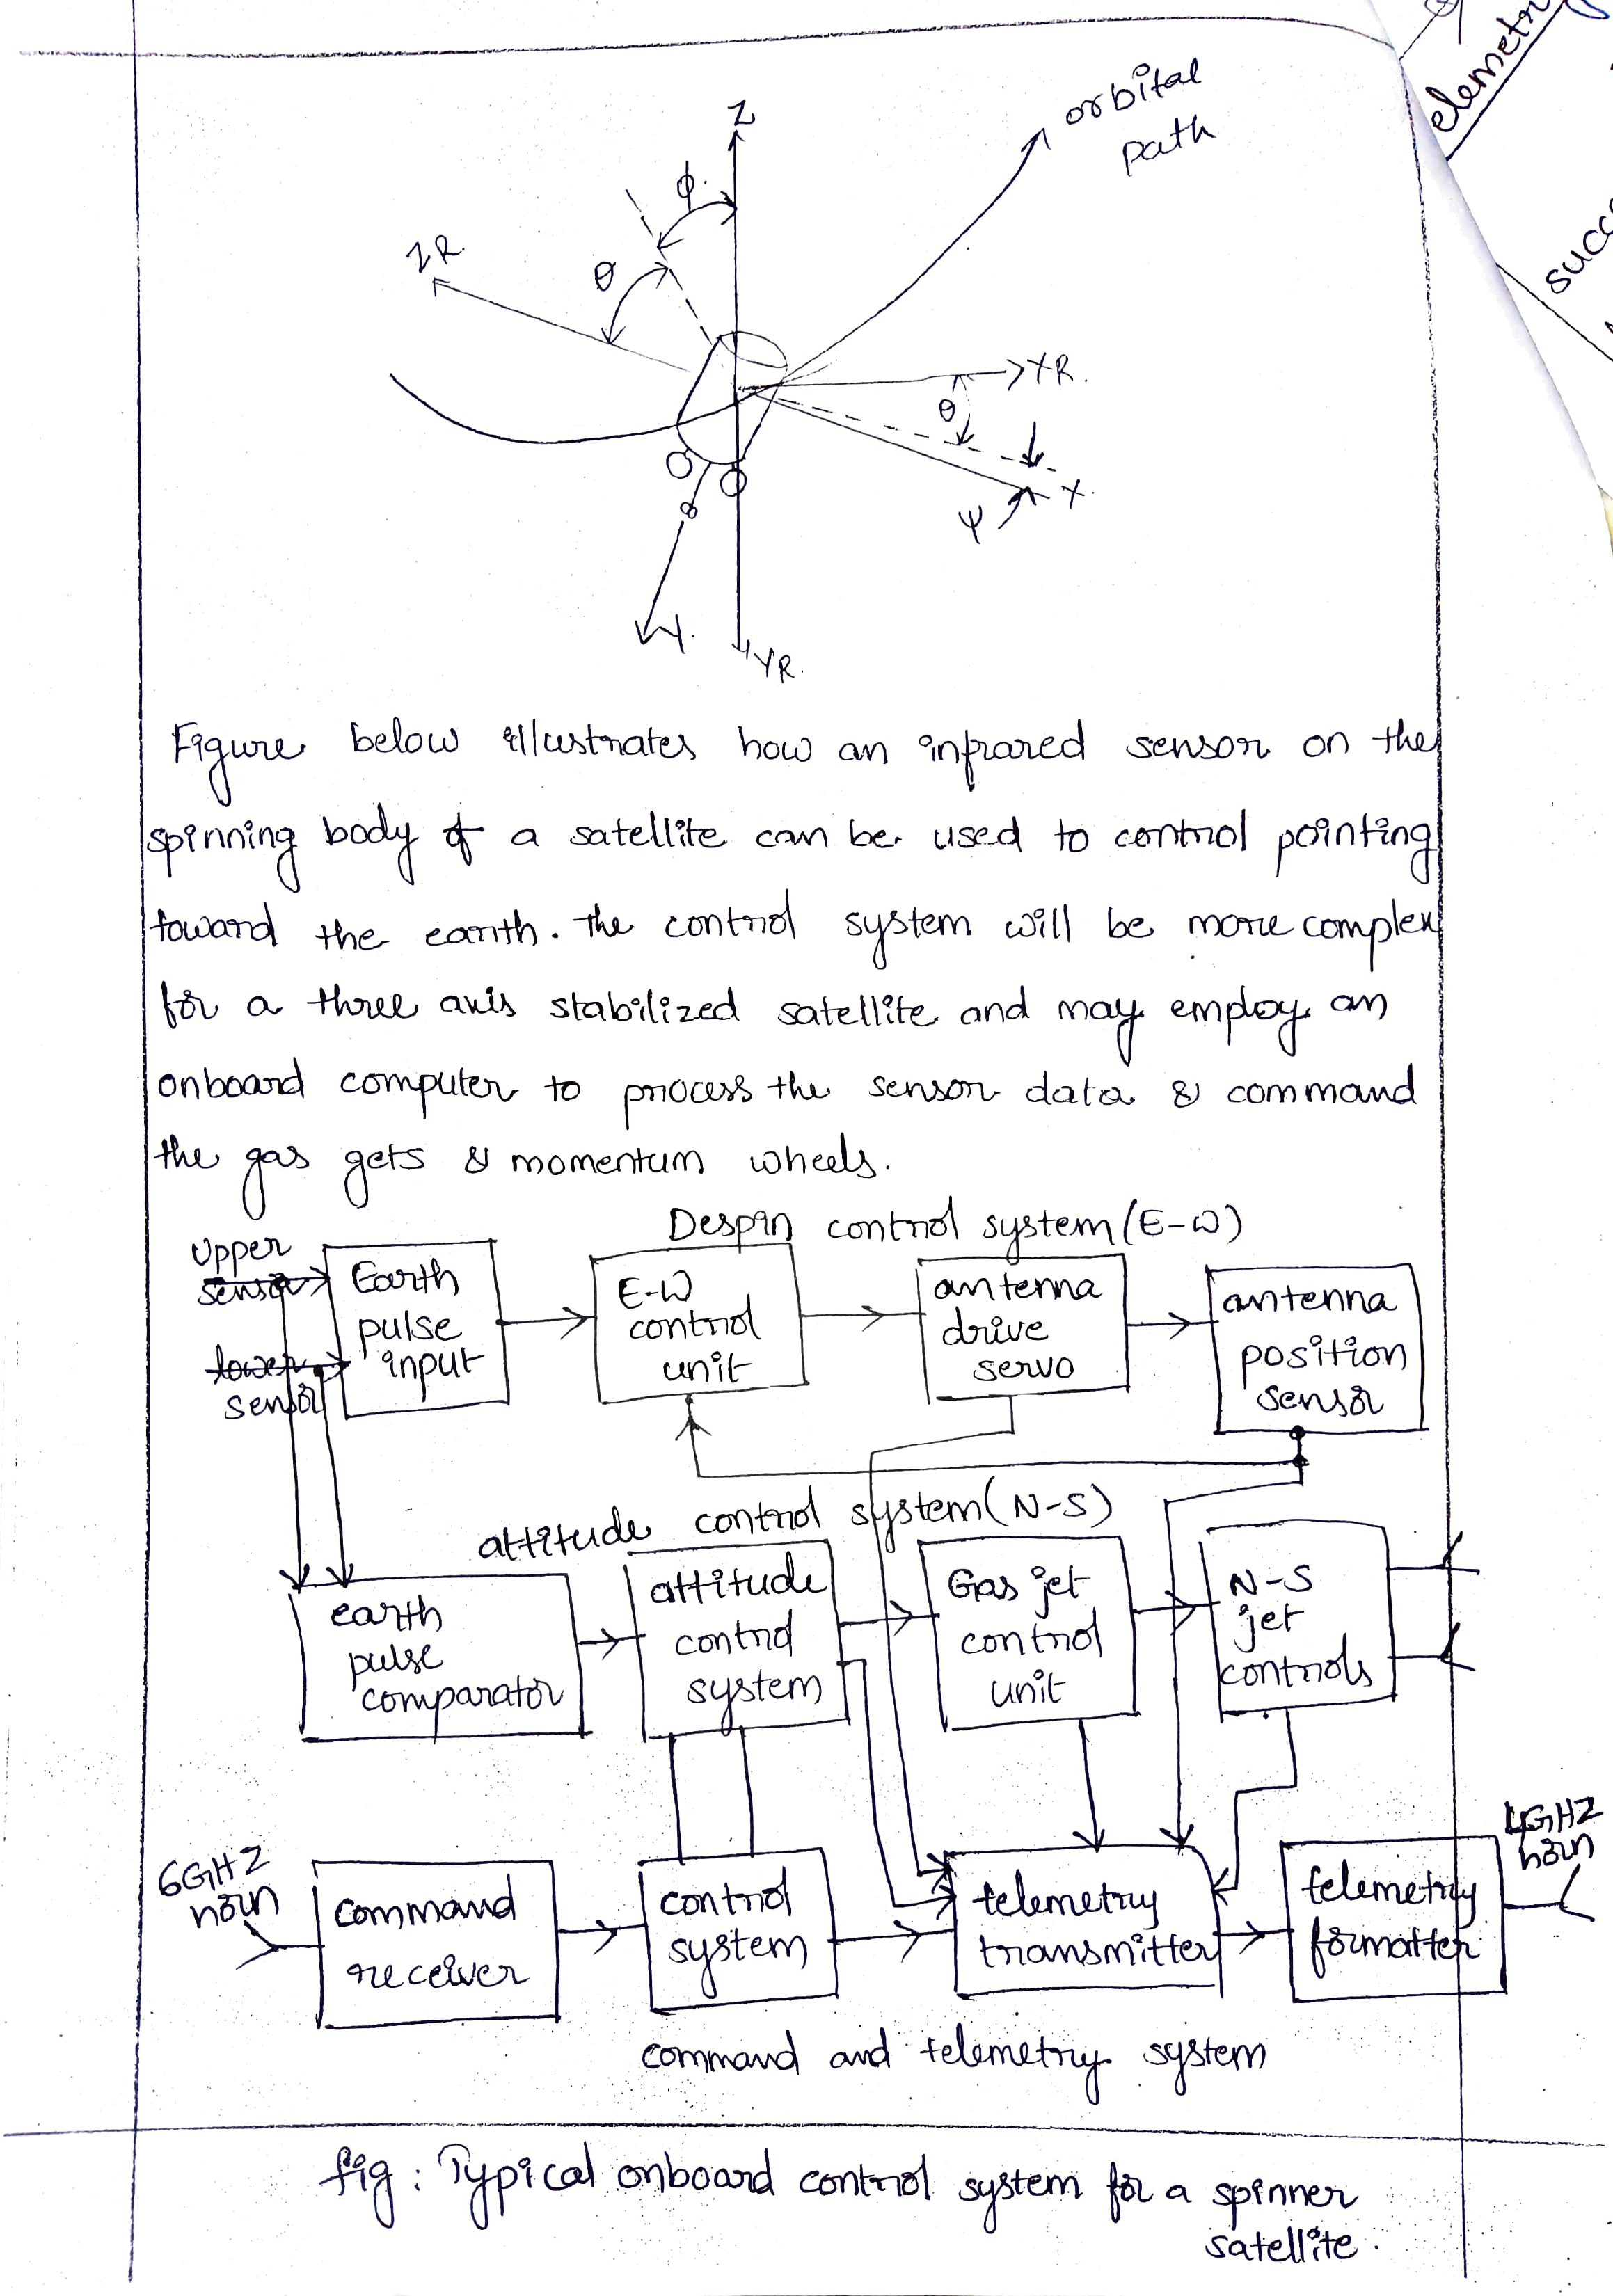 elemetr
succ
orbital
path
Z
ϕ
ZR
θ
XR
θ
X
ψ
Y
YR
Figure below illustrates how an infrared sensor on the
spinning body of a satellite can be used to control pointing
toward the earth. the control system will be more complex
for a three axis stabilized satellite and may employ an
onboard computer to process the sensor data & command
the gas gets & momentum wheels.
Despin control system (E-W)
Upper
sensor
lower
sensor
Earth
pulse
input
E-W
control
unit
antenna
drive
servo
antenna
position
sensor
attitude control system (N-S)
earth
pulse
comparator
attitude
control
system
Gas jet
control
unit
N-S
jet
controls
6GHZ
horn
command
receiver
control
system
telemetry
transmitter
telemetry
formatter
4GHZ
horn
command and telemetry system
fig : Typical onboard control system for a spinner
satellite.